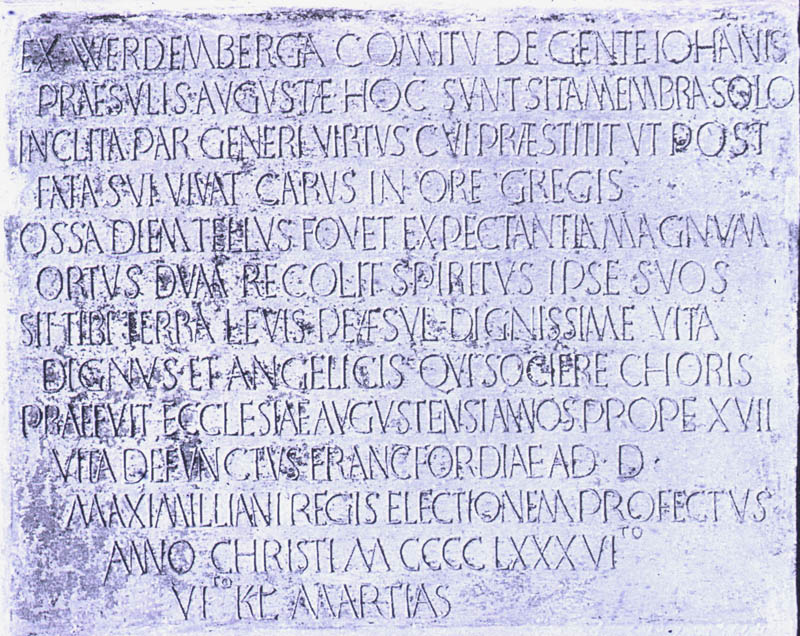 EX WERDEMBERGA COMITV DE GENTE IOHANIS
PRAESVLIS·AVGVSTÆ·HOC SVNT SITA MEMBRA SOLO
INCLITA PAR GENERI VIRTVS CVI PRÆSTITIT VT POST
FATA SVI VIVAT CARVS IN ORE GREGIS
OSSA DIEM TELLVS FOVET EXPECTANTIA MAGNVM
ORTVS DVM RECOLIT SPIRITVS IPSE SVOS
SIT TIBI TERRA LEVIS PRÆSVL DIGNISSIME VITA
DIGNVS ET ANGELICIS QVI SOCIERE CHORIS
PRAEFVIT ECCLESIAE AVGVSTENSI ANNOS PROPE XVII
VITA DEFVNCTVS FRANCFORDIAE AD · D ·
MAXIMILLIANI REGIS ELECTIONEM PROFECTVS
ANNO CHRISTI M CCCC LXXXVI TO
VI TO KL MARTIAS